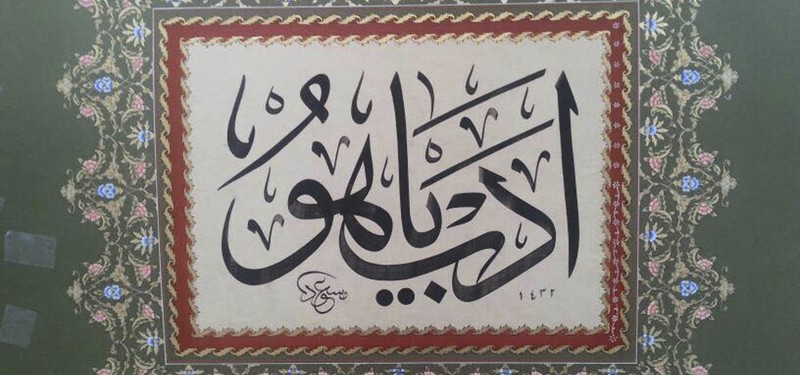 ادب يا هو
١٤٣٢